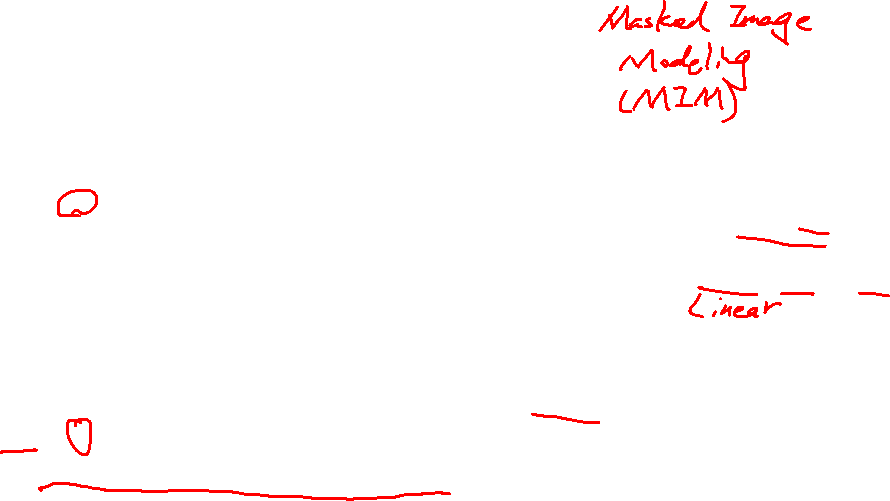 Masked Image
Modeling
(MIM)
Linear